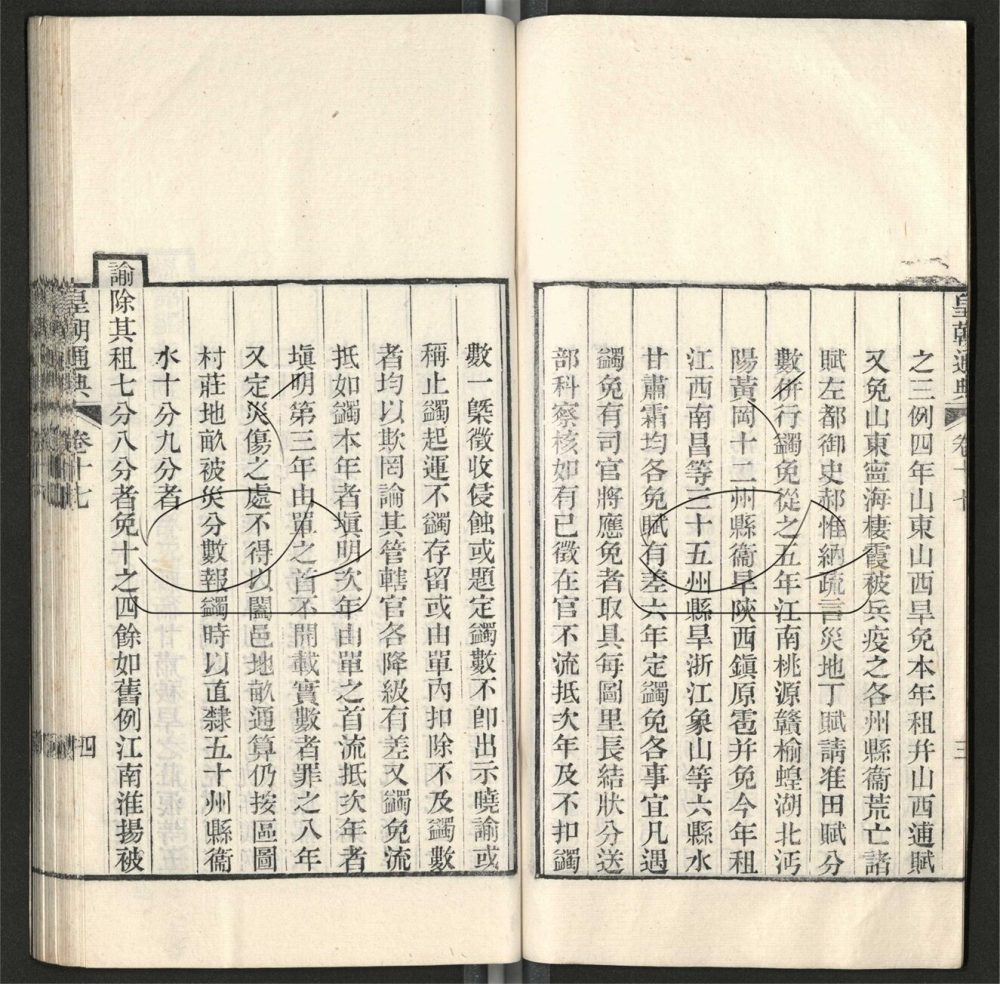 皇朝通典 卷十七 三
之三例四年山東山西旱免本年租幷山西逋賦
又免山東寧海棲霞被兵疫之各州縣衞荒亡諸
賦左都御史郝惟納疏言災地丁賦請准田賦分
數併行蠲免從之五年江南桃源贛榆蝗湖北沔
陽黃岡十二州縣衞旱陝西鎮原雹并免今年租
江西南昌等三十五州縣旱浙江象山等六縣水
甘肅霜均各免賦有差六年定蠲免各事宜凡遇
蠲免有司官將應免者取具每圖里長結狀分送
部科察核如有已徵在官不流抵次年及不扣蠲
數一槩徵收侵蝕或題定蠲數不卽出示曉諭或
稱止蠲起運不蠲存留或由單內扣除不及蠲數
者均以欺罔論其管轄官各降級有差又蠲免流
抵如蠲本年者塡明次年由單之首流抵次年者
塡明第三年由單之首不開載實數者罪之八年
又定災傷之處不得以闔邑地畝通算仍按區圖
村莊地畝被災分數報蠲時以直隸五十州縣衞
水十分九分者
諭除其租七分八分者免十之四餘如舊例江南淮揚被
皇朝通典 卷十七 四